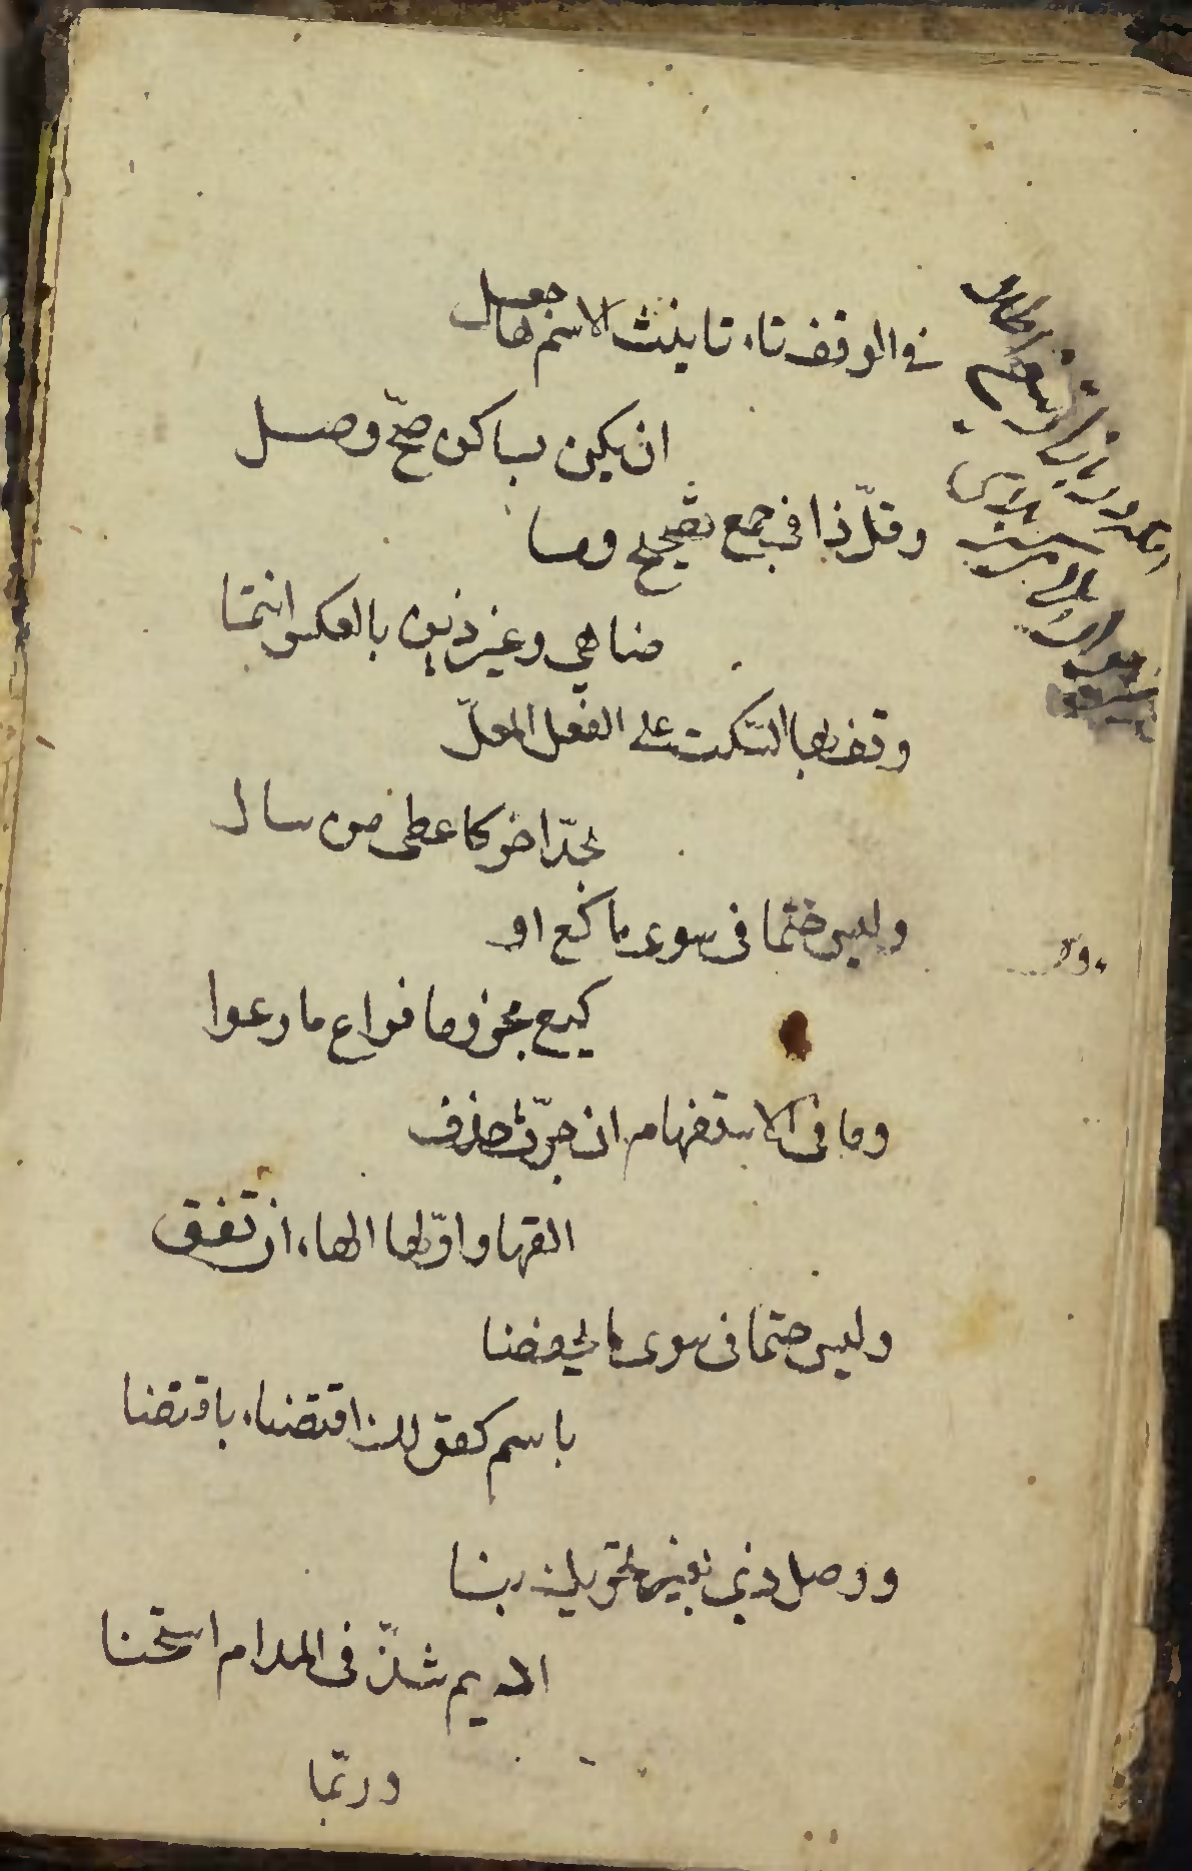 فى الوقف تاء تانيث الاسم ها جعل
ان يكن بساكن صحّ وصل
وقلّ ذا فى جمع تصحيح وما
ضاهى وغير ذين بالعكس انتما
وقف بها السّكت على الفعل المعلّ
بحذّ اخر كاعطى من سال
وليس حتما فى سوى ما كع او
كيع مجزوما فراع ما رعوا
وما فى الاستفهام ان جرّت حذف
الفها واوّلها الهاء ان تقف
وليس حتما فى سوى ما انخفضا
باسم كقولك اقتضاء ما اقتضا
ووصل ذى بغير تحريك بنا
اديم شذّ فى المدام استحسنا
وربّما